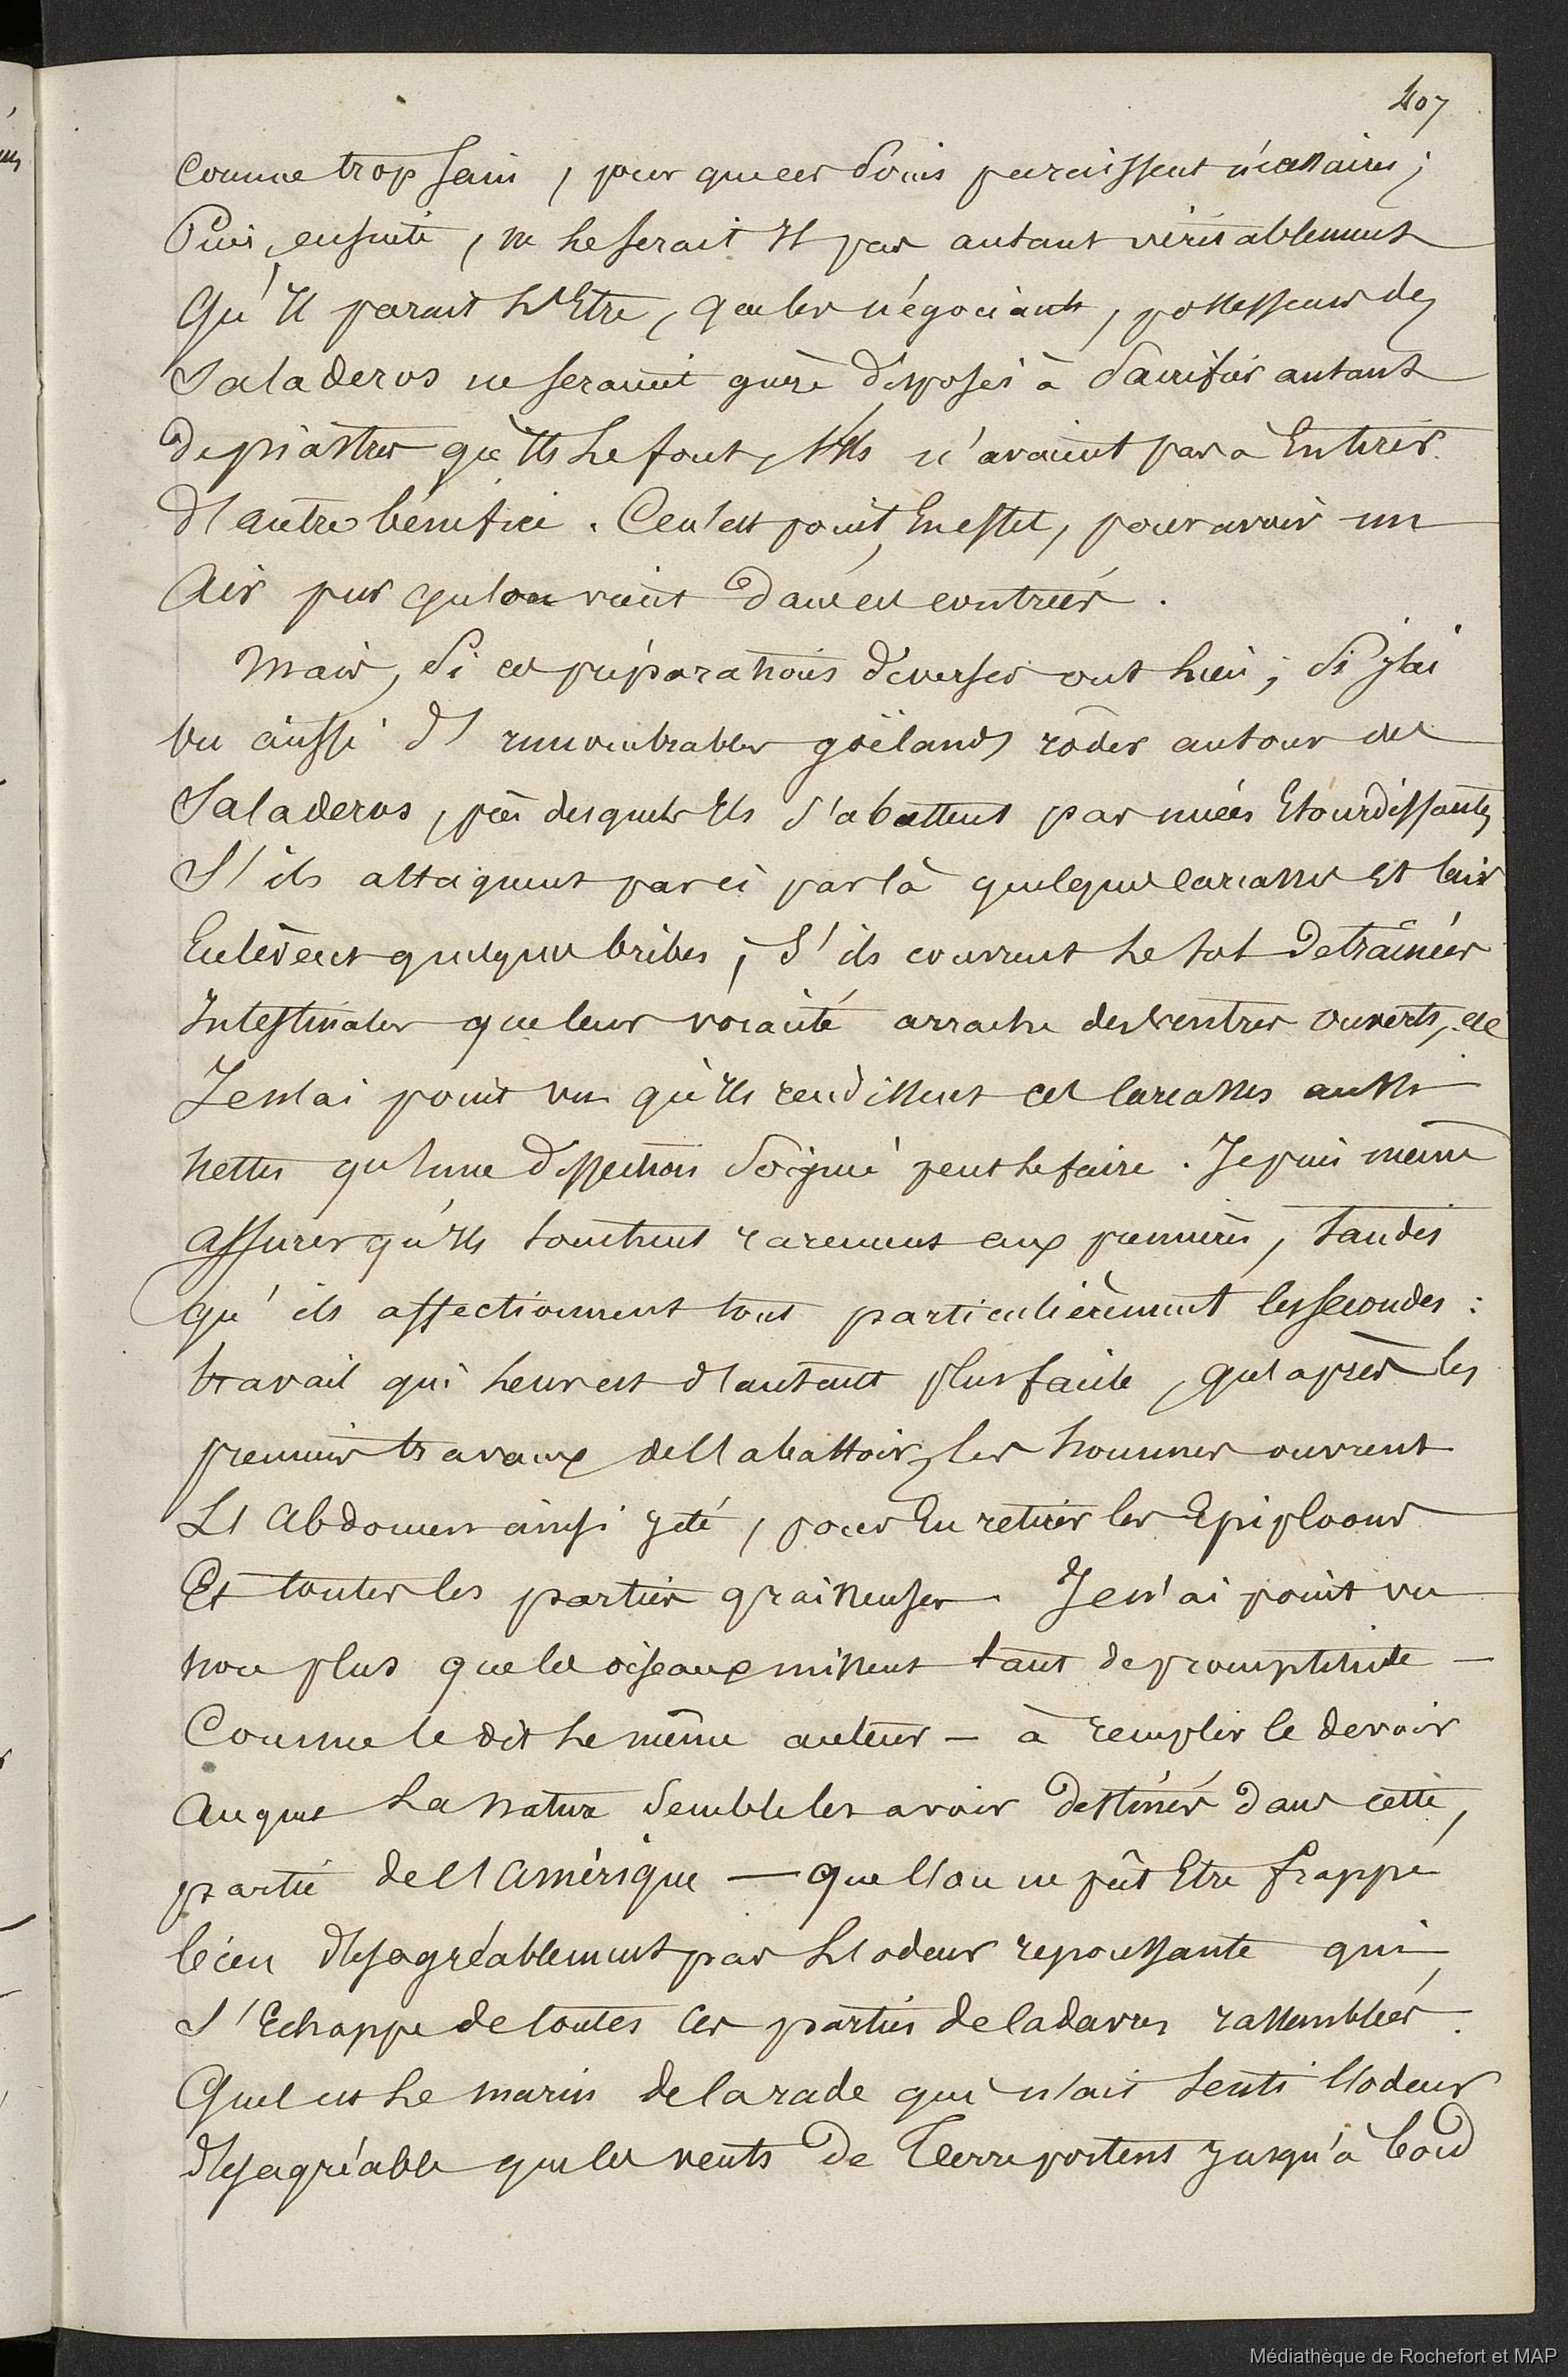 407
connue trop sain, pour que ces soins paraissent nécessaires;
Puis, ensuite, ne le serait Il pas autant véritablement
Qu'Il parait L'Etre, que les négociants, possesseurs des
Saladeros ne seraient guère disposés à Sacrifier autant
de piastres qu'Ils le font, s'Ils n'avaient pas à Entirer
d'autre bénéfice. Ce n'est point, En effet, pour avoir un
Air pur qu'on vient dans ces contrées.
Mais, Si ces préparations diverses ont lieu; Si j'ai
vu aussi d'innombrables goëlands rôder autour des
Saladeros, près desquels Ils s'abattent par nuées Etourdissantes
S'ils attaquent par ci par là quelques carcasses Et leur
Enlèvent quelques bribes, S'ils couvrent le sol de traînées
Intestinales que leur voracité arrache des ventres ouverts,
Je n'ai point vu qu'Ils rendissent ces carcasses aussi
nettes qu'une dissection Soignée peut le faire. Je puis même
assurer qu'Ils touchent rarement aux premières, tandis
qu'ils affectionnent tout particulièrement les secondes:
travail qui leur est d'autant plus facile, qu'après les
premiers travaux de l'abattoir, les hommes ouvrent
L'Abdomen ainsi jeté, pour En retirer les Epiploons
Et toutes les parties graisseuses. Je n'ai point vu
non plus que les oiseaux missent tant de promptitude —
Comme le dit le même auteur — à remplir le devoir
Auquel La nature Semble les avoir destinés dans cette,
partie de l'Amérique — que l'on ne pût Etre frappé
bien desagréablement par L'odeur repoussante qui
s'Echappe de toutes ces parties de cadavres rassemblées.
Quel est Le marin de la rade qui n'ait senti l'odeur
desagréable que les vents de Terre portent jusqu'à bord
Médiathèque de Rochefort et MAP